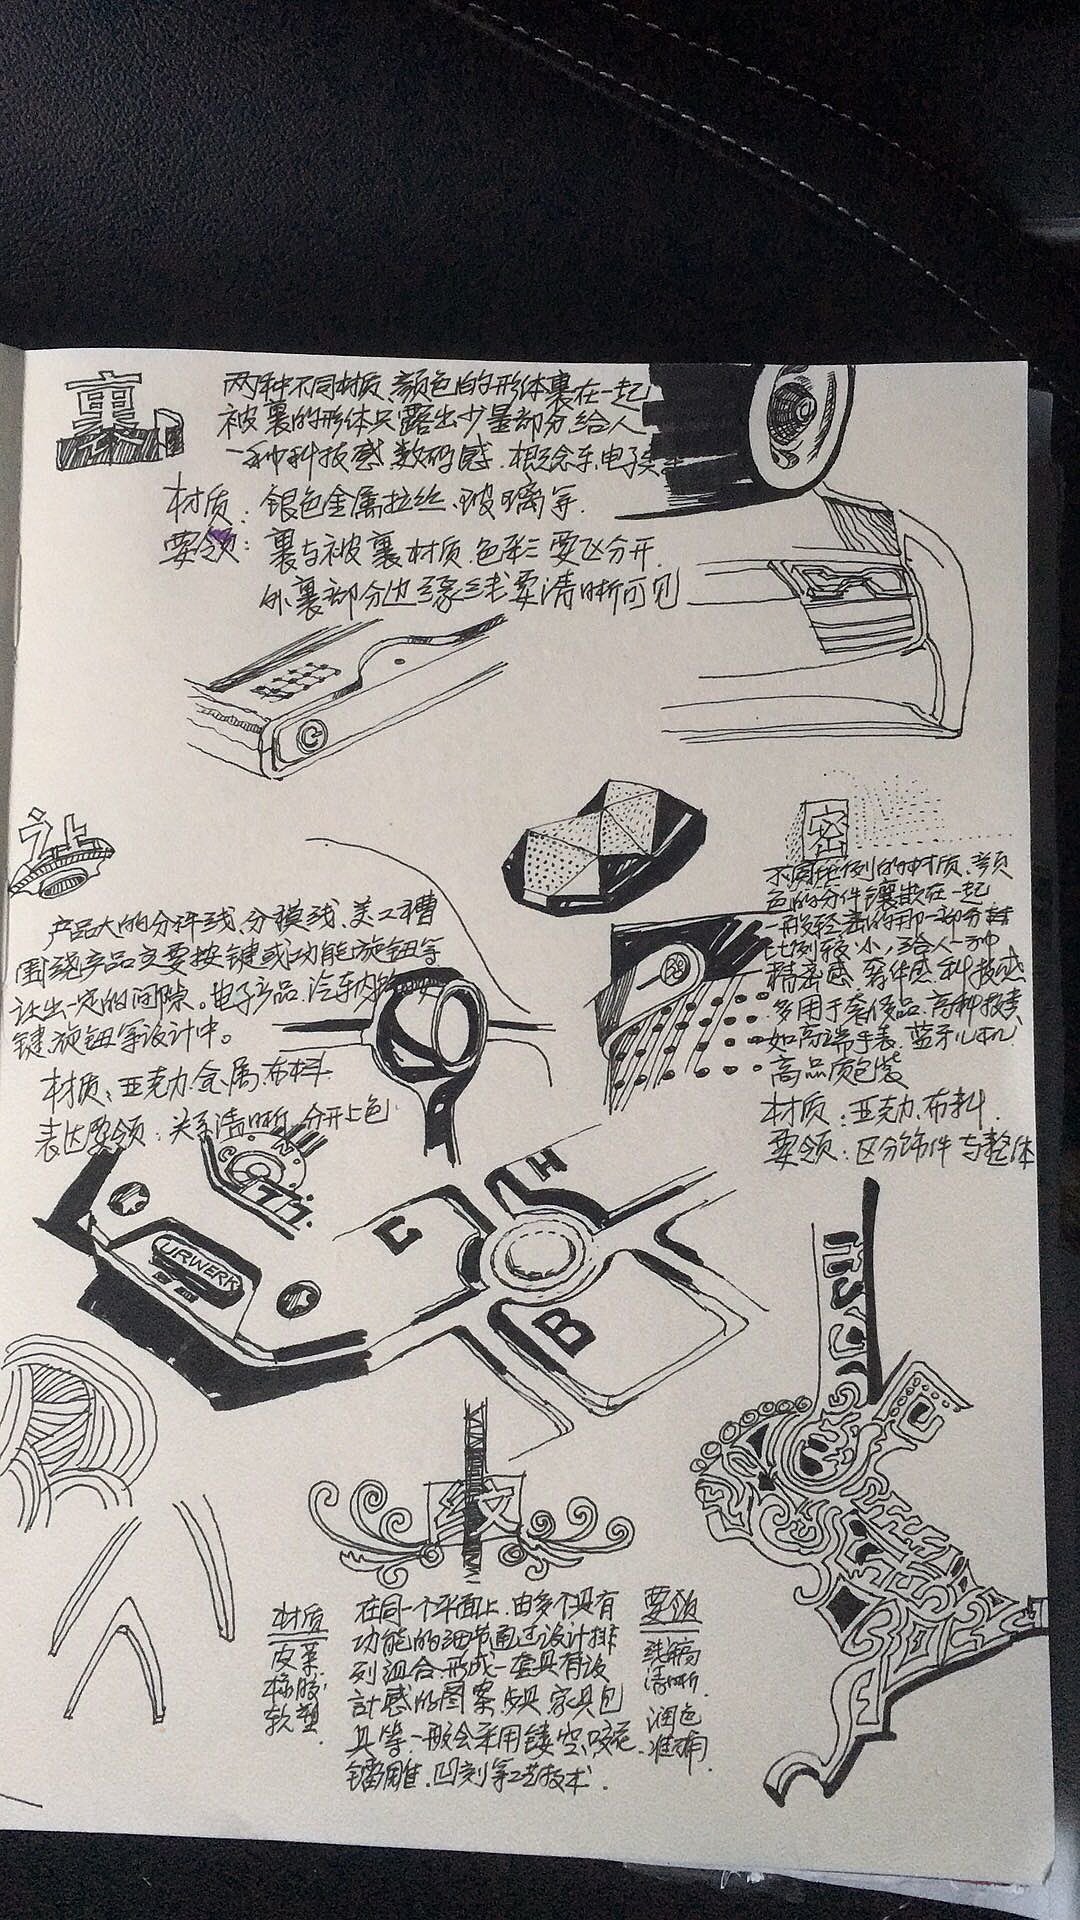 裹
两种不同材质.颜色的形体裹在一起
被裹的形体只露出少量部分给人
一种科技感.数码感.概念车.电子类
材质：银色金属拉丝.玻璃等.
要领：裹与被裹材质.色彩要区分开.
外裹部分边缘线要清晰可见
让
产品大的分件线.分模线.美工槽
围绕产品主要按键或功能旋钮等
让出一定的间隙。电子产品.汽车内饰
键.旋钮等设计中。
材质：亚克力.金属.布料.
表达要领：关系清晰.分开上色
密
不同比例的材质.颜
色的分件镶嵌在一起
一般轻密的那一部分
比例较小，给人一种
精密感.奢侈感.科技感
多用于奢侈品.高科技类
如高端手表.蓝牙耳机
高品质包装
材质：亚克力.布料.
要领：区分饰件与整体
URWERK
C
H
B
纹
材质
皮革
橡胶
软塑
在同一个平面上.由多个具有
功能的细节通过设计排
列组合.形成一套具有设
計感的图案.皮具.家具包
具等.一般会采用镂空.咬花.
镭雕.凹刻等工艺技术.
要领
线稿
清晰.
润色
准确